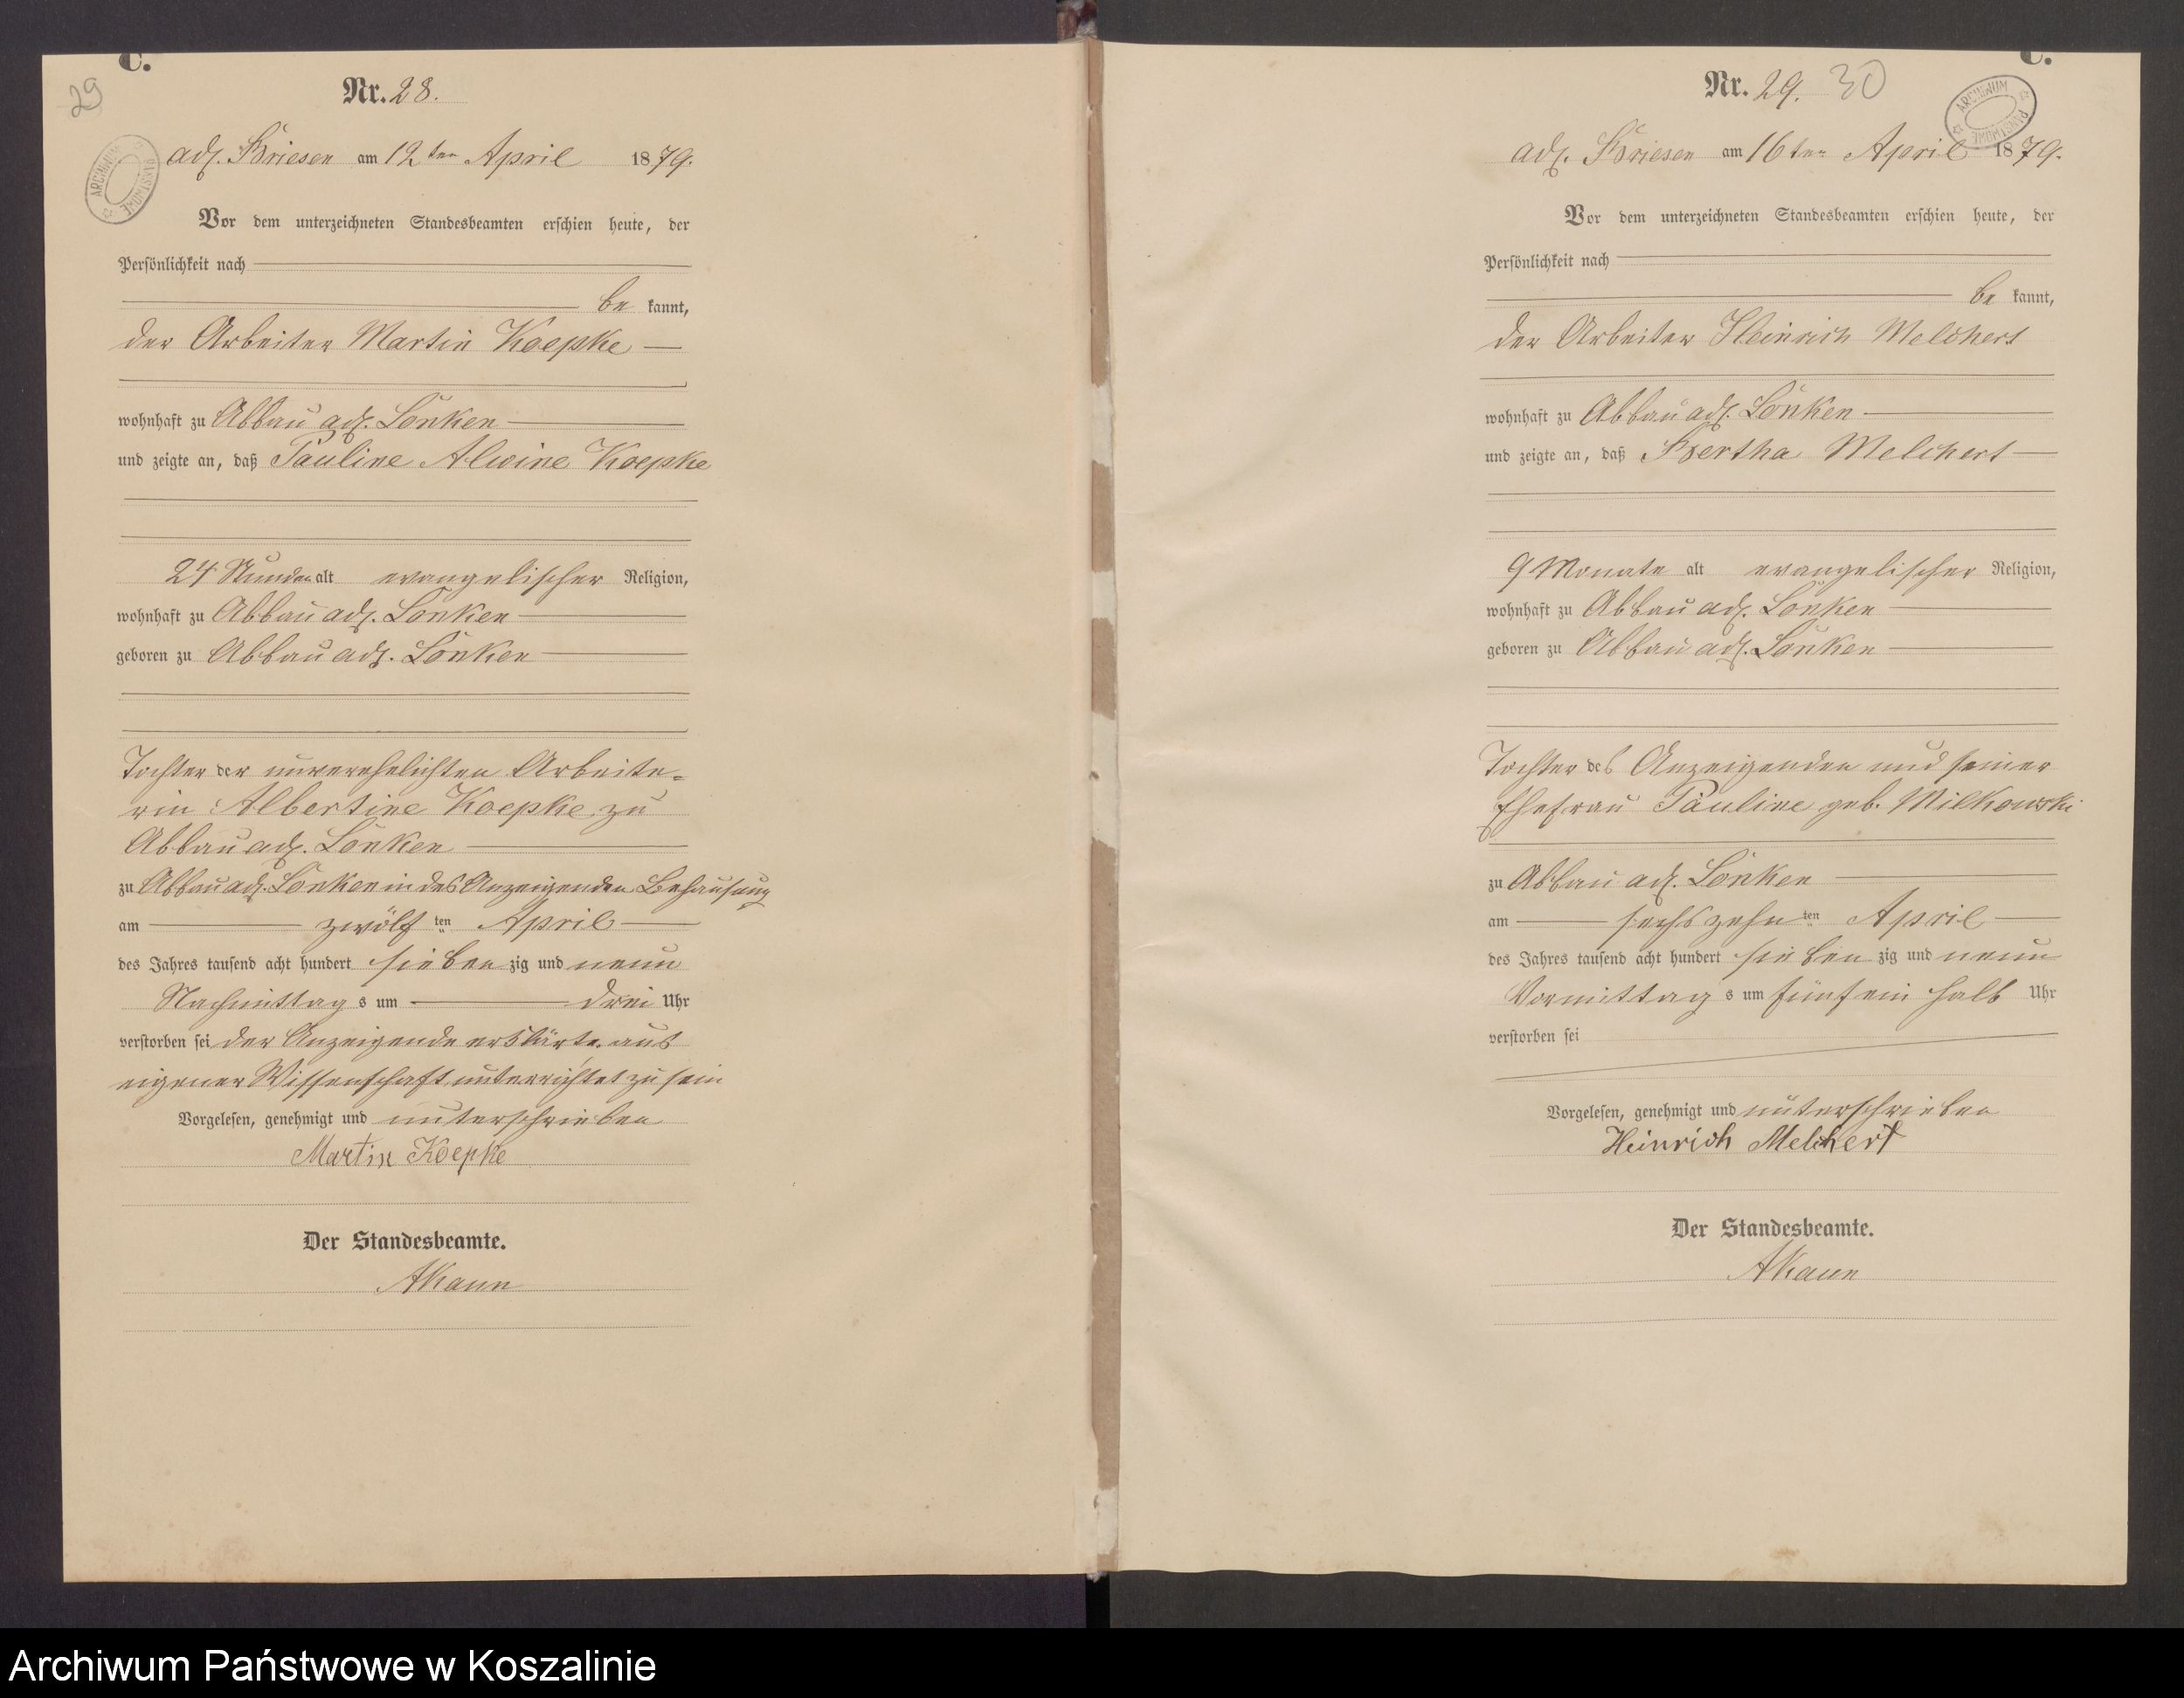 29
C.
Nr. 28.
ARCHIWUM PAŃSTWOWE
adl. Briesen am 12ten April 1879.
Vor dem unterzeichneten Standesbeamten erschien heute, der
Persönlichkeit nach
be kannt,
der Arbeiter Martin Koepke
wohnhaft zu Abbau adl. Lonken
und zeigte an, daß Pauline Alwine Koepke
24 Stunden alt evangelischer Religion,
wohnhaft zu Abbau adl. Lonken
geboren zu Abbau adl. Lonken
Tochter der unverehelichten Arbeite=
rin Albertine Koepke zu
Abbau adl. Lonken
zu Abbau adl. Lonken in des Anzeigenden Behausung
am zwölf ten April
des Jahres tausend acht hundert sieben zig und neun
Nachmittag s um drei Uhr
verstorben sei der Anzeigende erklärte aus
eigener Wissenschaft unterrichtet zu sein
Vorgelesen, genehmigt und unterschrieben
Martin Koepke
Der Standesbeamte.
C.
Nr. 29. 30
ARCHIWUM PAŃSTWOWE
adl. Briesen am 16ten April 1879.
Vor dem unterzeichneten Standesbeamten erschien heute, der
Persönlichkeit nach
be kannt,
der Arbeiter Heinrich Melchert
wohnhaft zu Abbau adl. Lonken
und zeigte an, daß Bertha Melchert
9 Monate alt evangelischer Religion,
wohnhaft zu Abbau adl. Lonken
geboren zu Abbau adl. Lonken
Tochter des Anzeigenden und seiner
Ehefrau Pauline geb. Milkowski
zu Abbau adl. Lonken
am sechszehn ten April
des Jahres tausend acht hundert sieben zig und neun
Vormittag s um fünf ein halb Uhr
verstorben sei
Vorgelesen, genehmigt und unterschrieben
Heinrich Melchert
Der Standesbeamte.
Archiwum Państwowe w Koszalinie